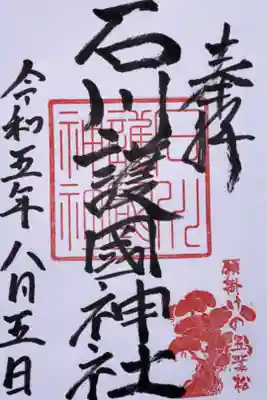 奉拝
石川護國神社
令和五年八月五日
石川護國神社
願掛けの